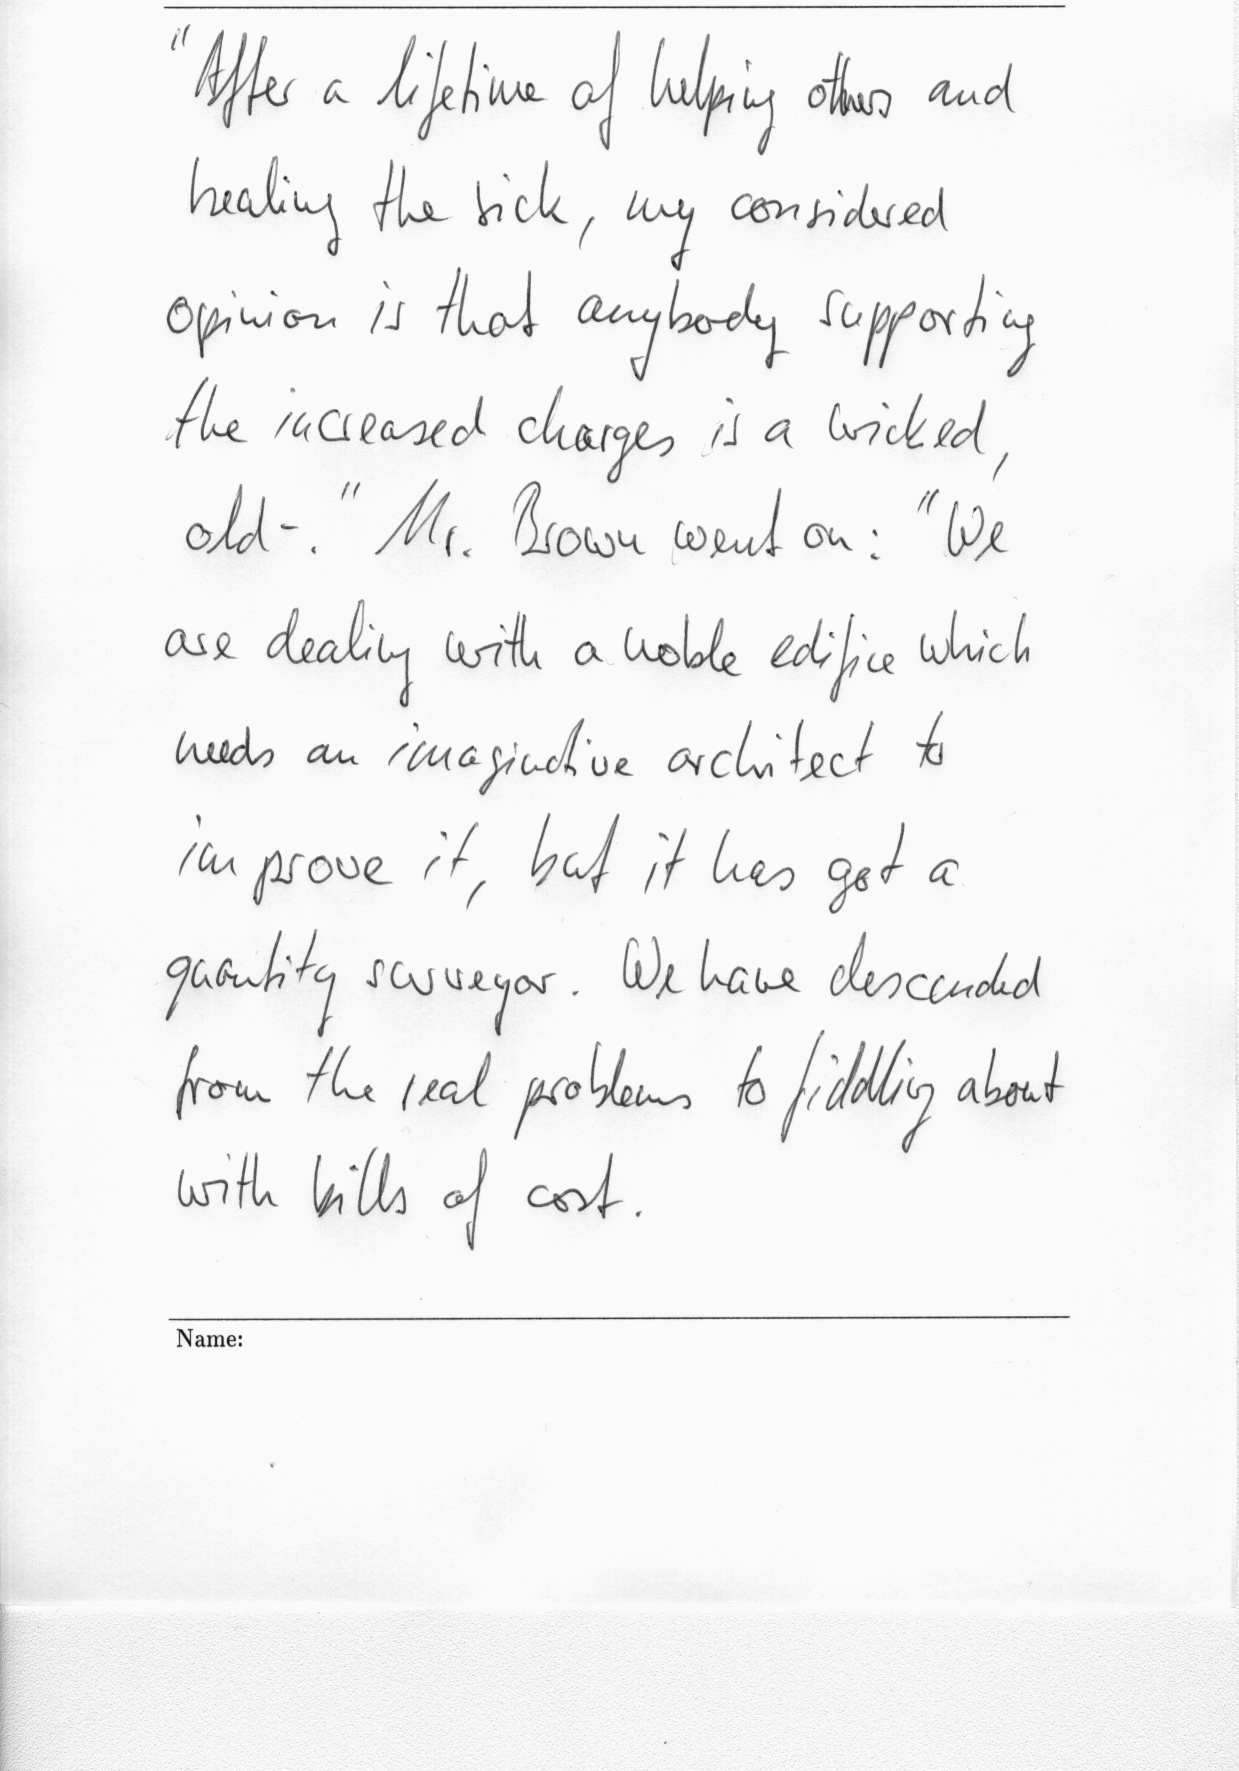 "After a lifetime of helping others and
healing the sick, my considered
opinion is that anybody supporting
the increased charges is a wicked,
old-." Mr. Brown went on: "We
are dealing with a noble edifice which
needs an imaginative architect to
improve it, but it has got a
quantity surveyor. We have descended
from the real problems to fiddling about
with bills of cost.
Name: